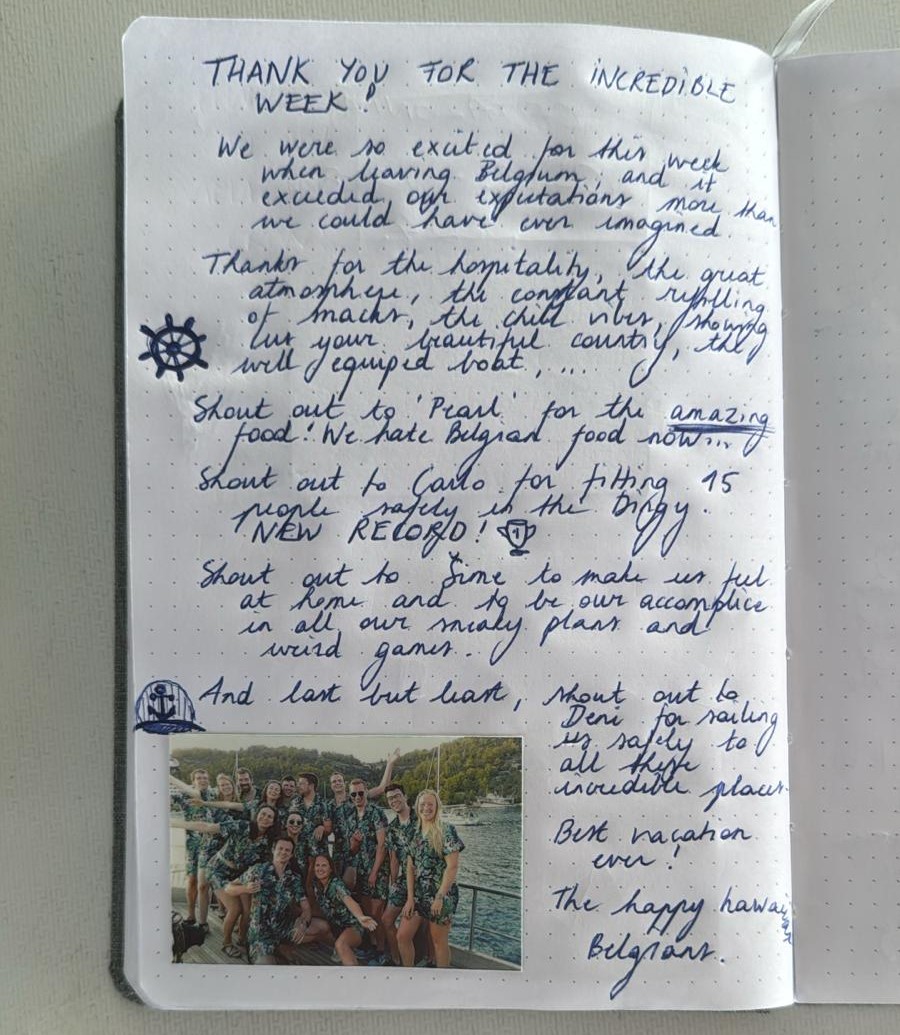 THANK YOU FOR THE INCREDIBLE
WEEK!
We were so excited for this week
when leaving Belgium, and it
exceeded our expectations more than
we could have ever imagined
Thanks for the hospitality, the great
atmosphere, the constant refilling
of snacks, the chill vibes, showing
us your beautiful country, the
well equiped boat, ...
Shout out to 'Pearl' for the amazing
food! We hate Belgian food now...
Shout out to Carlo for fitting 15
people safely in the Dingy.
NEW RECORD! 1
Shout out to Šime to make us feel
at home and to be our accomplice
in all our sneaky plans and
weird games.
And last but least, shout out to
Deni for sailing
us safely to
all these
incredible places.
Best vacation
ever!
The happy hawaiian
Belgians.